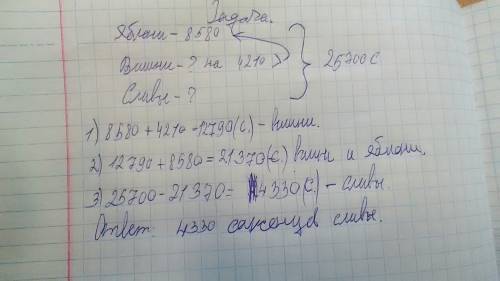 Задача.
Яблони - 8580
Вишни - ? на 4210 > } 25700 с.
Сливы - ?
1) 8580 + 4210 = 12790 (с.) - вишни.
2) 12790 + 8580 = 21370 (с.) вишни и яблони.
3) 25700 - 21370 = 4330 (с.) - сливы.
Ответ: 4330 саженцев сливы.